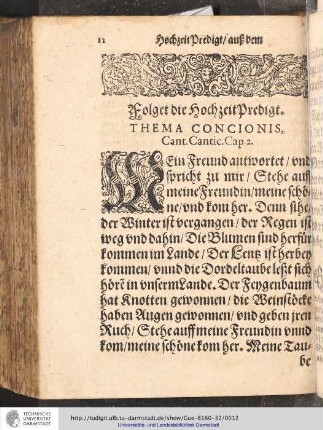 12 Hochzeit Predigt/ auß dem
Folget die Hochzeit Predigt.
THEMA CONCIONIS,
Cant. Cantic. Cap 2.
MEin Freund antwortet/ vnd
spricht zu mir/ Stehe auff
meine Freundin/ meine schö-
ne/ vnd kom her. Denn sihe/
der Winter ist vergangen/ der Regen ist
weg vnd dahin/ Die Blumen sind herfür
kommen im Lande/ Der Lentz ist herbey
kommen/ vnnd die Dordeltaube leßt sich
hörē in vnserm Lande. Der Feygenbaum
hat Knotten gewonnen/ die Weinstöcke
haben Augen gewonnen/ vnd geben jren
Ruch/ Stehe auff meine Freundin vnnd
kom/ meine schöne kom her. Meine Tau-
be
TECHNISCHE
UNIVERSITÄT
DARMSTADT
http://tudigit.ulb.tu-darmstadt.de/show/Gue-8160-32/0012
Universitäts- und Landesbibliothek Darmstadt